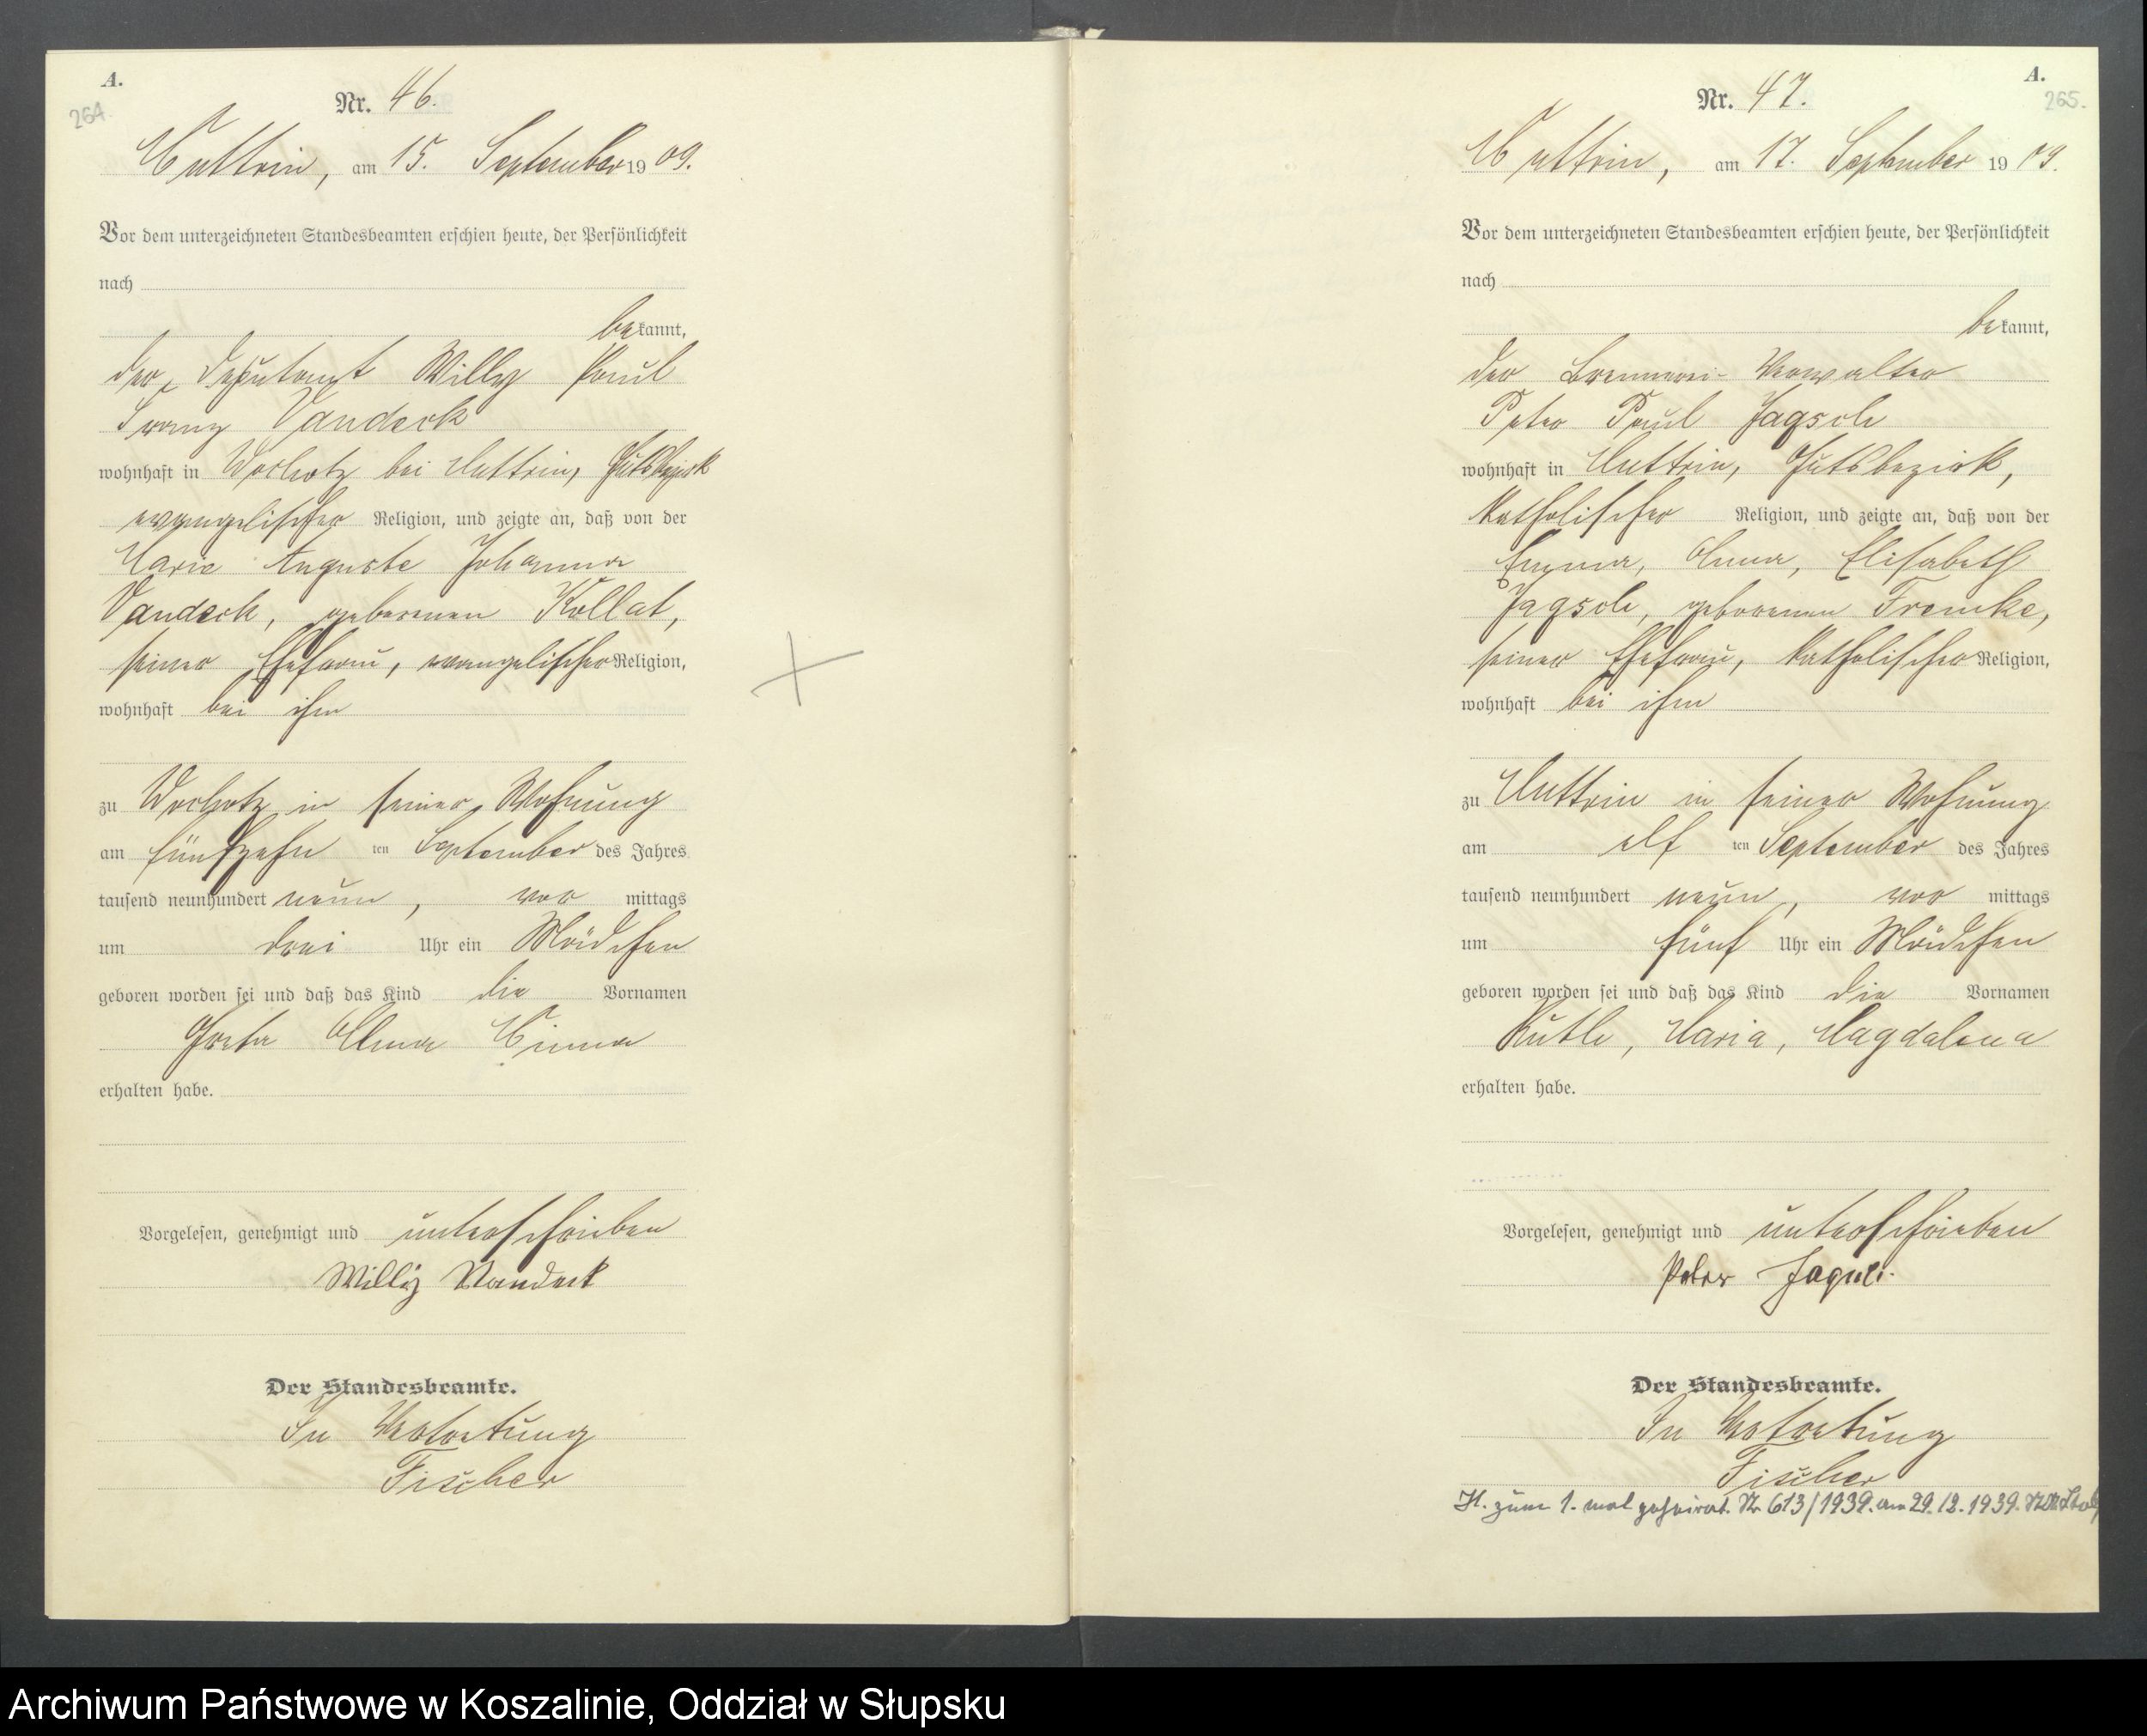 A.
264.
Nr. 46.
Muttrin, am 15. September 1909.
Vor dem unterzeichneten Standesbeamten erschien heute, der Persönlichkeit
nach
bekannt,
der Deputant Willy Paul
Franz Vandeck
wohnhaft in bei Muttrin, Gutsbezirk
evangelischer Religion, und zeigte an, daß von der
Marie Auguste Johanna
Vandeck, geborenen Kollat,
seiner Ehefrau, evangelischer Religion,
wohnhaft bei ihm
zu in seiner Wohnung
am fünfzehn ten September des Jahres
tausend neunhundert neun, vor mittags
um drei Uhr ein Mädchen
geboren worden sei und daß das Kind die Vornamen
Greta Anna Minna
erhalten habe.
Vorgelesen, genehmigt und unterschrieben
Willy Vandeck
Der Standesbeamte.
In Vertretung
Fischer
A.
265.
Nr. 47.
Muttrin, am 17. September 1909.
Vor dem unterzeichneten Standesbeamten erschien heute, der Persönlichkeit
nach
bekannt,
der Brennerei-Verwalter
Peter Paul Jagsch
wohnhaft in Muttrin, Gutsbezirk,
katholischer Religion, und zeigte an, daß von der
Emma, Anna, Elisabeth
Jagsch, geborenen Franke,
seiner Ehefrau, katholischer Religion,
wohnhaft bei ihm
zu Muttrin in seiner Wohnung
am elf ten September des Jahres
tausend neunhundert neun, vor mittags
um fünf Uhr ein Mädchen
geboren worden sei und daß das Kind die Vornamen
Ruth, Maria, Magdalena
erhalten habe.
Vorgelesen, genehmigt und unterschrieben
Peter Jagsch.
Der Standesbeamte.
In Vertretung
Fischer
H. zum 1. mal geheirat. Nr. 613/1939. am 29.12.1939.
Archiwum Państwowe w Koszalinie, Oddział w Słupsku